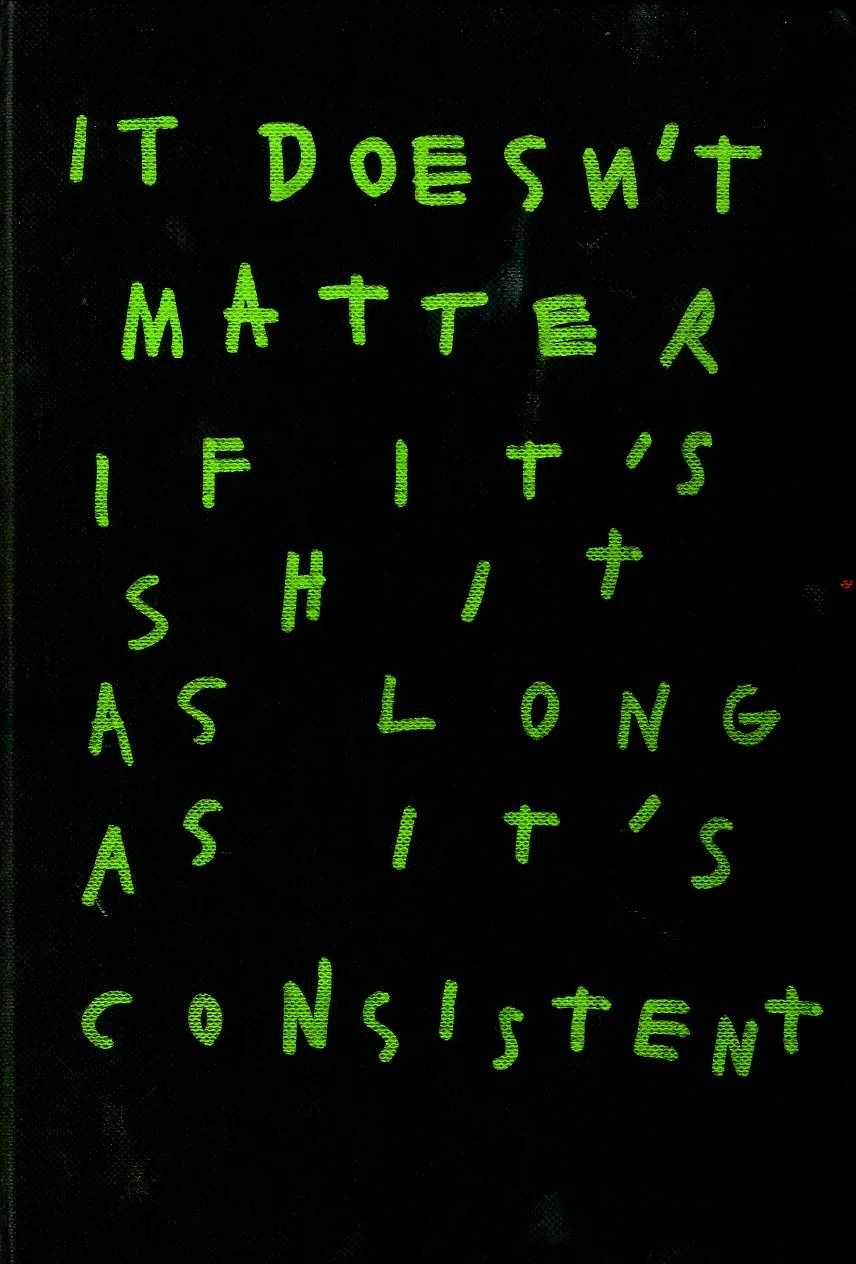 IT DOESN'T
MATTER
IF IT'S
SHIT
AS LONG
AS IT'S
CONSISTENT